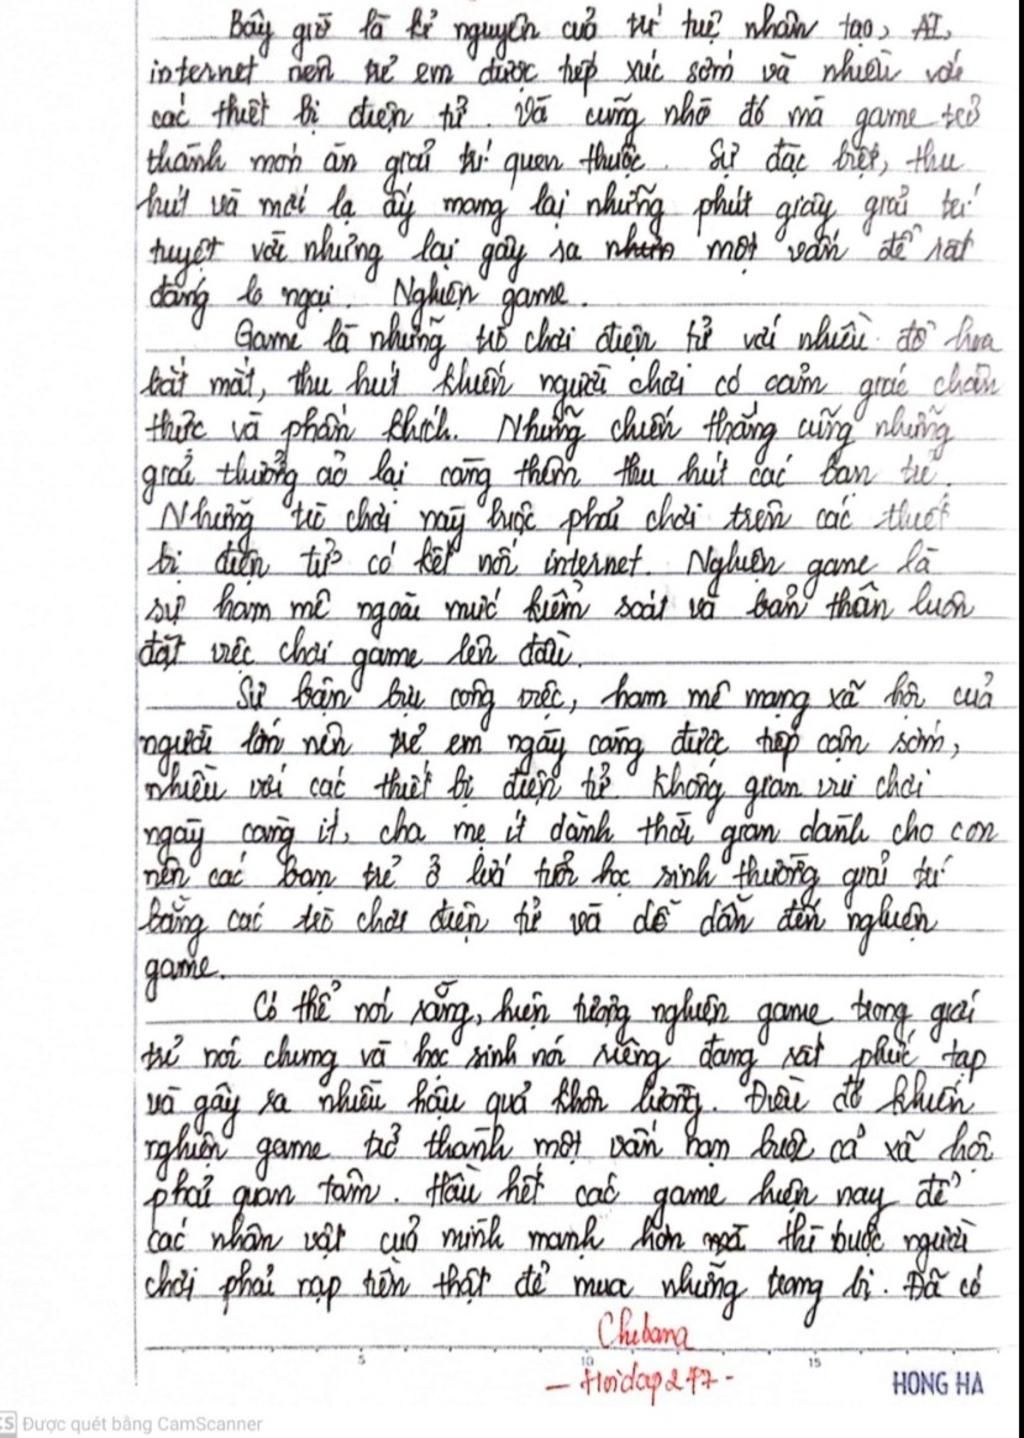 Bây giờ là kỉ nguyên của trí tuệ nhân tạo, AI,
internet nên trẻ em được tiếp xúc sớm và nhiều với
các thiết bị điện tử. Và cũng nhờ đó mà game trở
thành món ăn giải trí quen thuộc. Sự đặc biệt, thu
hút và mới lạ ấy mang lại những phút giây giải trí
tuyệt vời nhưng lại gây ra một vấn đề rất
đáng lo ngại. Nghiện game.
Game là những trò chơi điện tử với nhiều đồ họa
bắt mắt, thu hút khiến người chơi có cảm giác chân
thực và phấn khích. Những chiến thắng cũng những
giải thưởng ảo lại càng thêm thu hút các bạn trẻ.
Những trò chơi này buộc phải chơi trên các thiết
bị điện tử có kết nối internet. Nghiện game là
sự ham mê ngoài mức kiểm soát và bản thân luôn
đặt việc chơi game lên đầu.
Sự bận bịu công việc, ham mê mạng xã hội của
người lớn nên trẻ em ngày càng được tiếp cận sớm,
nhiều với các thiết bị điện tử. Không gian vui chơi
ngày càng ít, cha mẹ ít dành thời gian dành cho con
nên các bạn trẻ ở lứa tuổi học sinh thường giải trí
bằng các trò chơi điện tử và dễ dẫn đến nghiện
game.
Có thể nói rằng, hiện tượng nghiện game trong giới
trẻ nói chung và học sinh nói riêng đang rất phức tạp
và gây ra nhiều hậu quả khôn lường. Điều đó khiến
nghiện game trở thành một vấn nạn buộc cả xã hội
phải quan tâm. Hầu hết các game hiện nay để
các nhân vật của mình mạnh hơn thì buộc người
chơi phải nạp tiền thật để mua những trang bị. Đã có
Chibana
5 10 15
- Hoidap247 -
HONG HA
CS Được quét bằng CamScanner